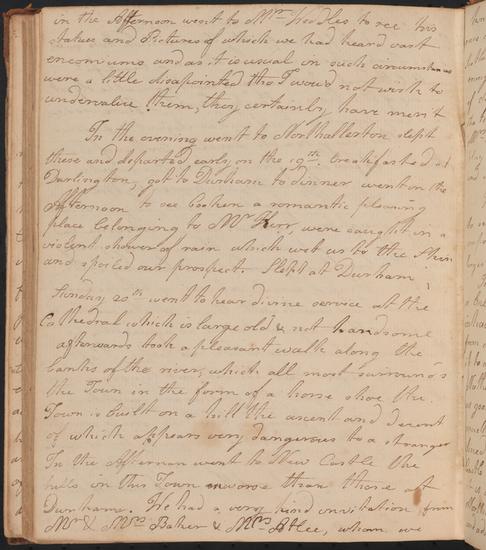 in the Afternoon went to Mr. Weddles to see his
statues and Pictures of which we had heard vast
encomiums and as it is usual on such circumstances
were a little disapointed tho I woud not wish to
undervalue them, they certainly have merit
In the evening went to Northallerton slept
there and departed early on the 19th, breakfasted at
Darlington, got to Durham to dinner went in the
Afternoon to see Cocken a romantic pleasing
place belonging to Mr. Kerr, were caught in a
violent shower of rain which wet us to the Skin
and spoiled our prospect. Slept at Durham
Sunday 20th went to hear divine service at the
Cathedral which is large old & not handsome
afterwards took a pleasant walk along the
banks of the river, which all most surrounds
the Town in the form of a horse shoe the
Town is built on a hill the ascent and decent
of which appears very dangerous to a stranger
In the Afternoon went to New Castle the
hills in this Town worse than those at
Durham. We had a very kind invitation from
Mr. & Mrs Baker & Mrs Atlee, whom we